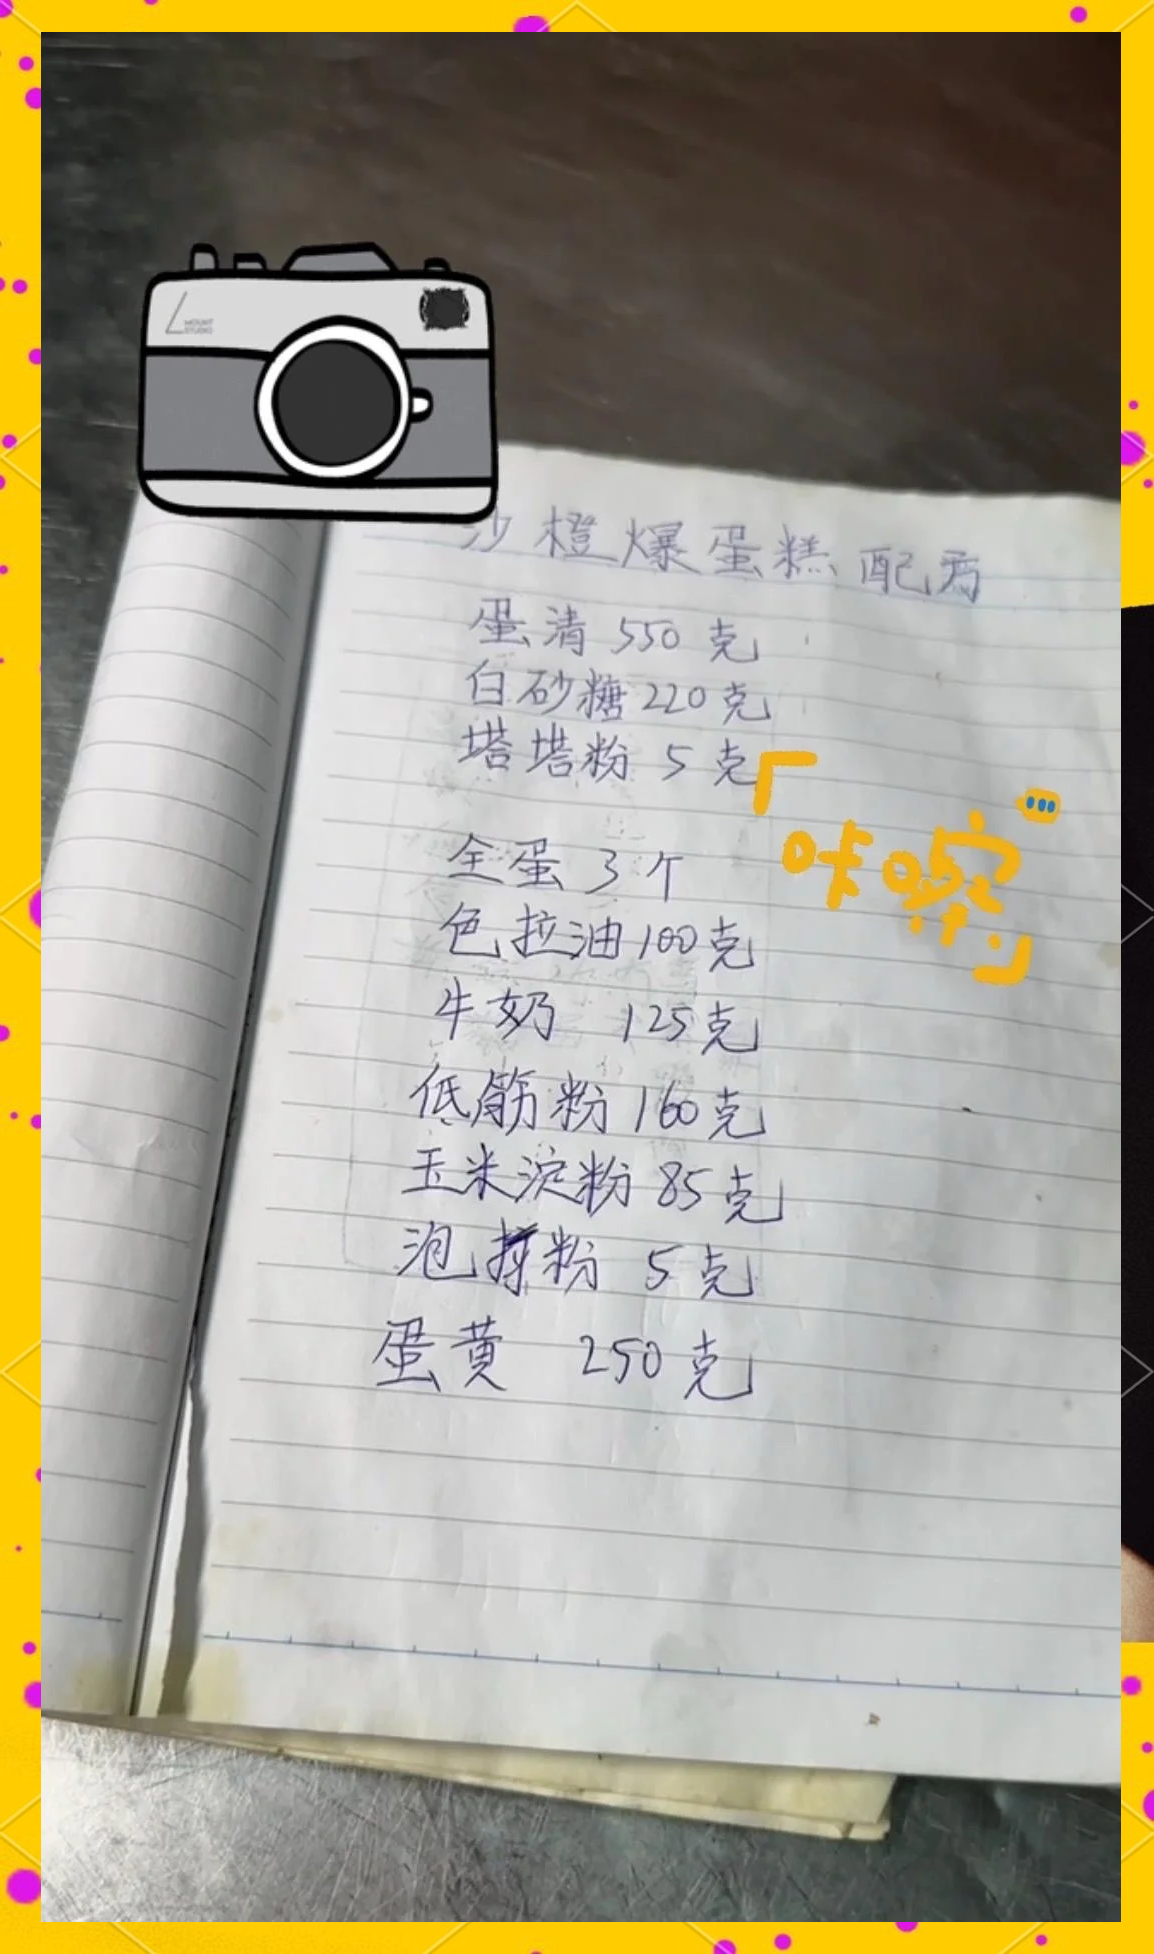 MOUNT
STUDIO
沙橙爆蛋糕配方
蛋清 550 克
白砂糖 220 克
塔塔粉 5 克
「咔嚓」
全蛋 3 个
色拉油 100 克
牛奶 125 克
低筋粉 160 克
玉米淀粉 85 克
泡打粉 5 克
蛋黄 250 克